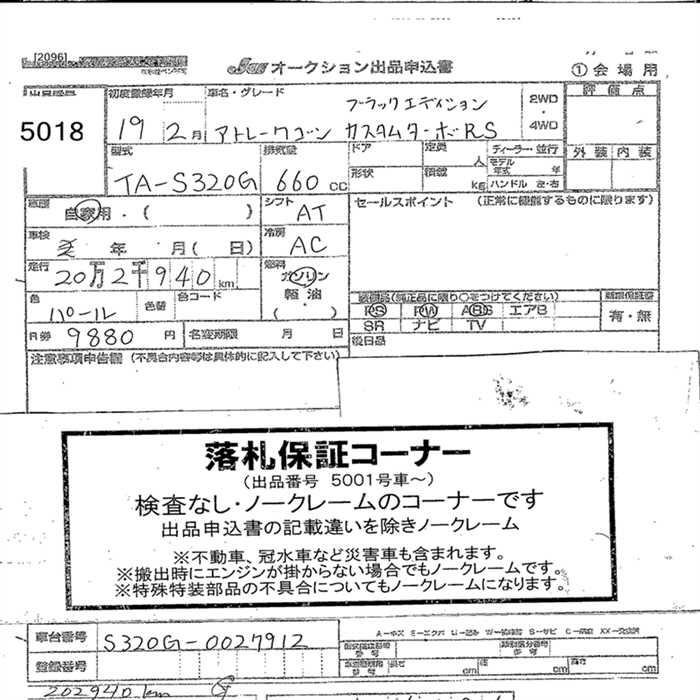 [2096]
オークション出品申込書
①会場用
5018
初度登録年月
19 2月
車名・グレード
ブラックエディション
アトレーワゴン カスタムターボRS
2WD
・
4WD
評価点
外装 内装
型式
TA-S320G
排気量
660 cc
ドア
定員
人
ディーラー・並行
モデル
年式 年
形状
積載
kg
ハンドル 左・右
自家用・( )
シフト
AT
セールスポイント (正常に機能するものに限ります)
車検
年 月( 日)
冷房
AC
走行
20万2千940km
燃料
ガソリン
軽油
(・)
色
パール
色替
色コード
装備品(純正品に限り○をつけてください)
PS PW ABS エアB
SR ナビ TV
有・無
R券 9880 円
名変期限 月 日
後日品
注意事項申告欄 (不具合内容等は具体的に記入して下さい)
落札保証コーナー
(出品番号 5001号車～)
検査なし・ノークレームのコーナーです
出品申込書の記載違いを除きノークレーム
※不動車、冠水車など災害車も含まれます。
※搬出時にエンジンが掛からない場合でもノークレームです。
※特殊特装部品の不具合についてもノークレームになります。
車台番号
S320G-0027912
登録番号
長さ cm 幅 cm 高さ cm
202940km